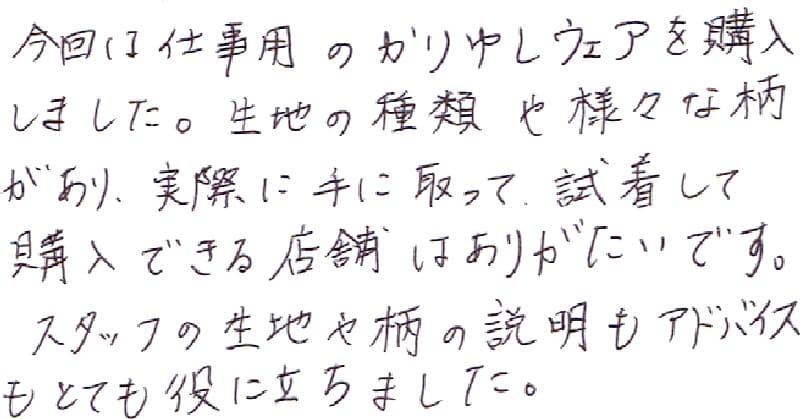 今回は仕事用のかりゆしウェアを購入
しました。生地の種類や様々な柄
があり、実際に手に取って、試着して
購入できる店舗はありがたいです。
スタッフの生地や柄の説明もアドバイス
もとても役に立ちました。